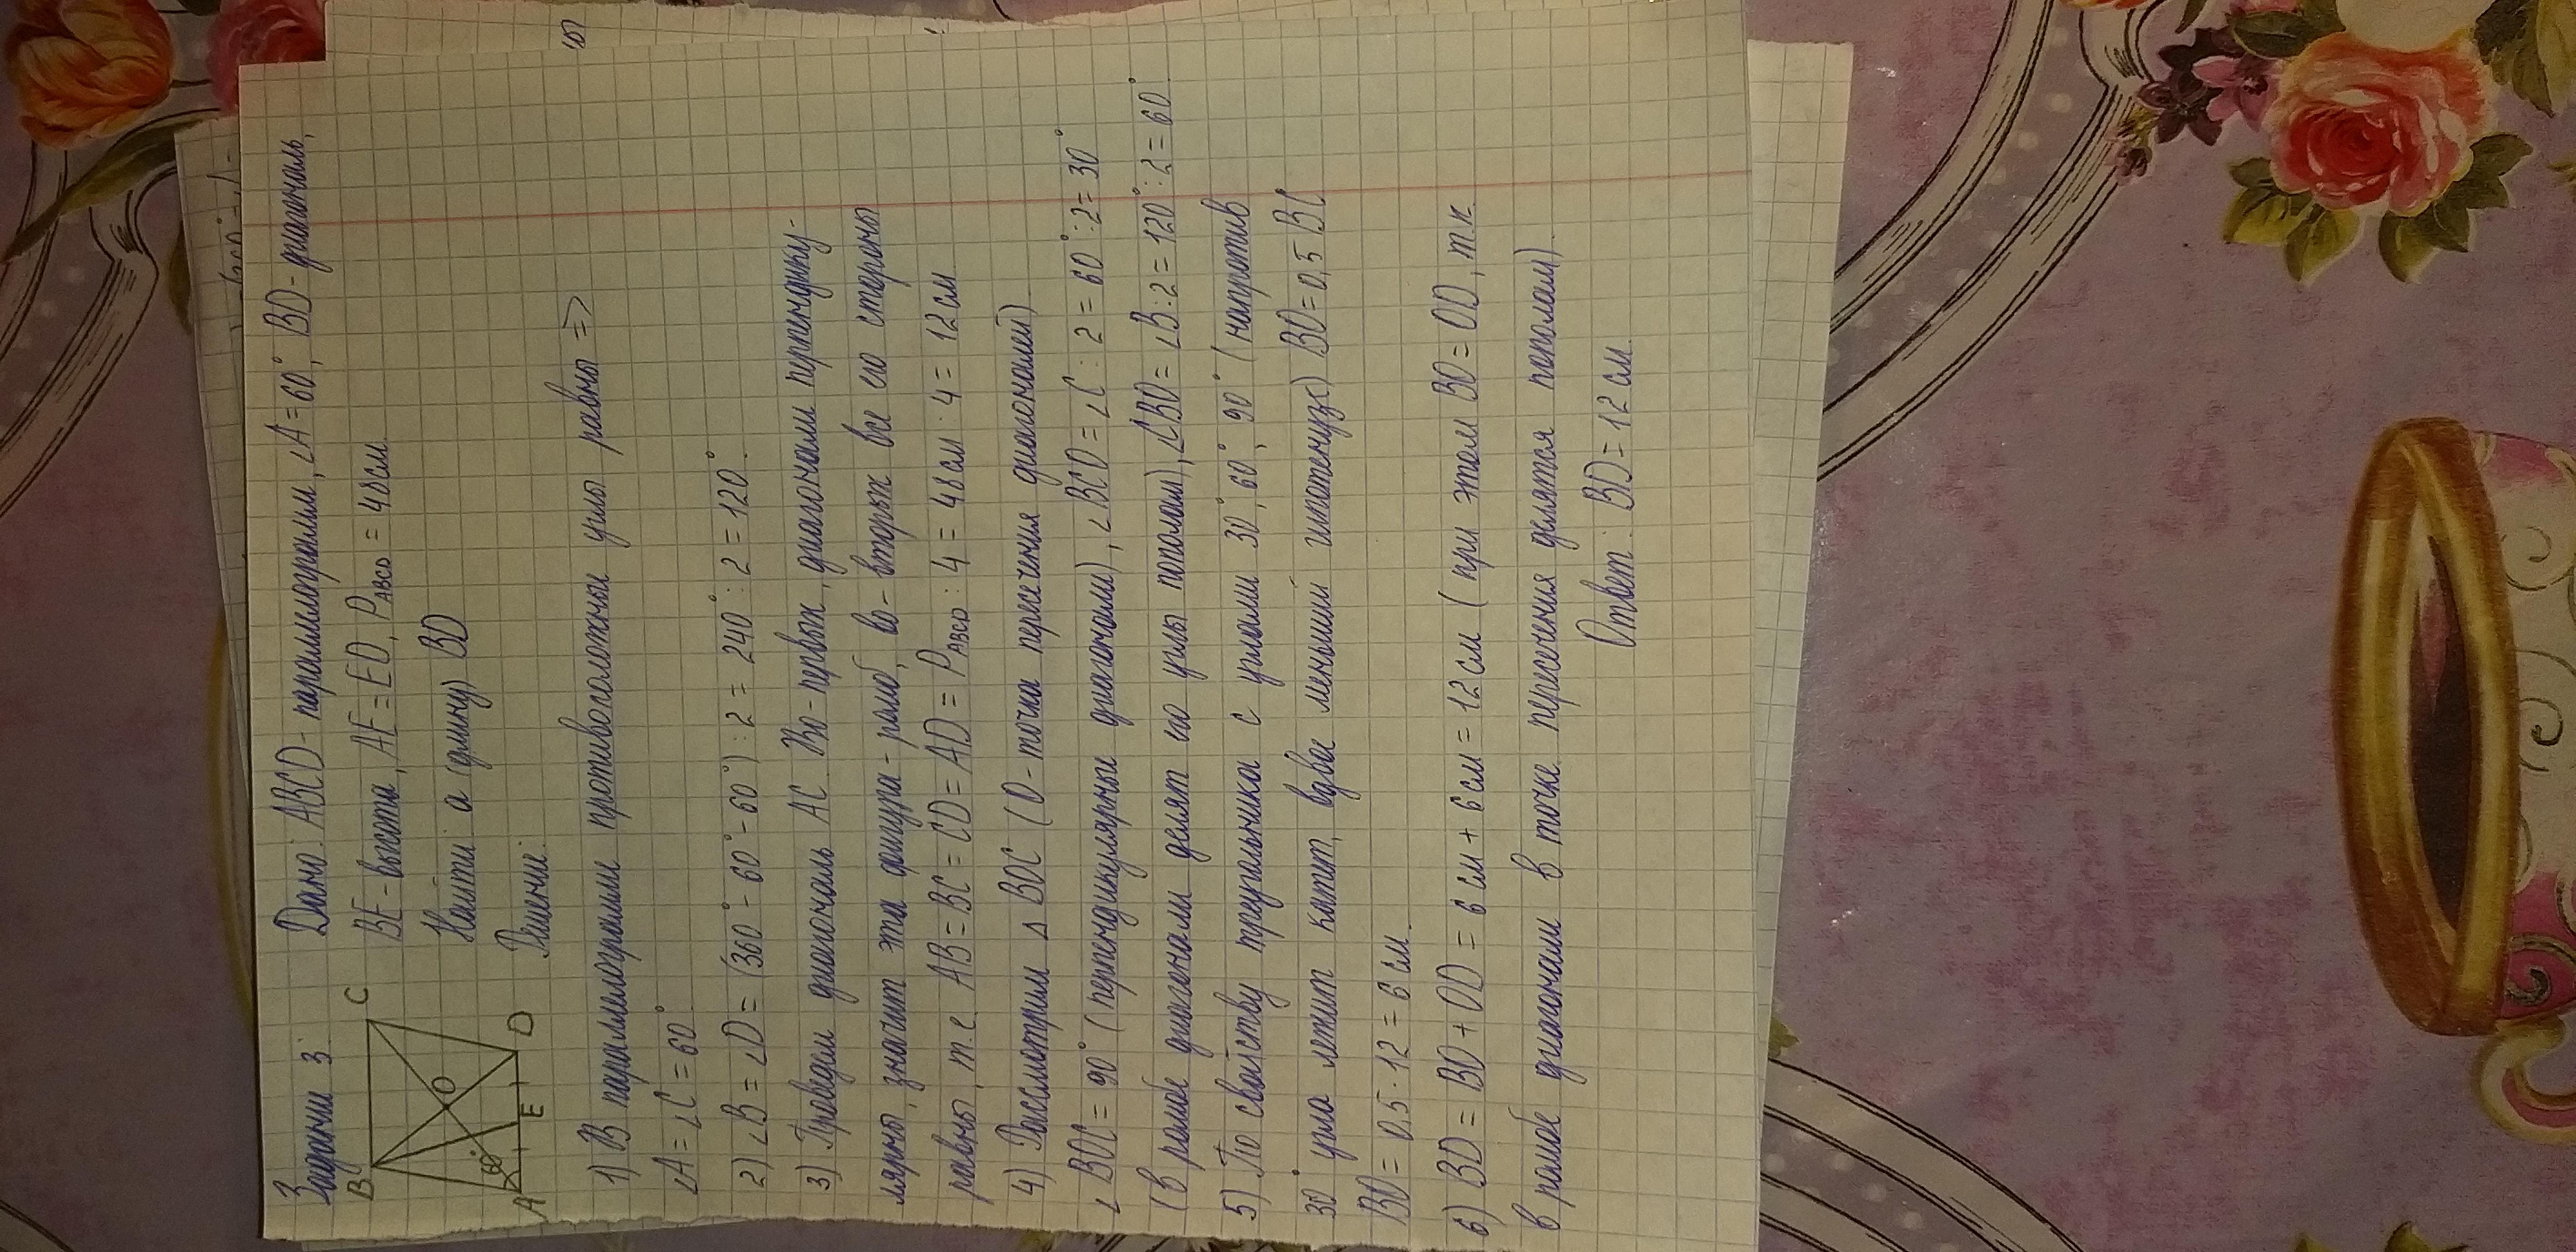 Задание 3.
Дано: ABCD - параллелограмм, ∠A = 60°, BD - диагональ,
BE - высота, AE = ED, P ABCD = 48 см.
Найти а (длину) BD
Решение:
B
C
O
60°
A
E
D
1) В параллелограмме противоположные углы равны =>
∠A = ∠C = 60°
2) ∠B = ∠D = (360° - 60° - 60°) : 2 = 240° : 2 = 120°.
3) Проведем диагональ AC. Во-первых, диагонали перпендику-
лярны, значит эта фигура - ромб, во-вторых все его стороны
равны, т.е. AB = BC = CD = AD = P ABCD : 4 = 48 см : 4 = 12 см
4) Рассмотрим Δ BOC (O - точка пересечения диагоналей)
∠BOC = 90° (перпендикулярные диагонали), ∠BCO = ∠C : 2 = 60° : 2 = 30°
(в ромбе диагонали делят его углы пополам), ∠CBO = ∠B : 2 = 120° : 2 = 60°.
5) По свойству треугольника с углами 30°, 60°, 90° (напротив
30° угла лежит катет, вдвое меньший гипотенузе) BO = 0,5 BC
BO = 0,5 · 12 = 6 см.
6) BD = BO + OD = 6 см + 6 см = 12 см (при этом BO = OD, т.к.
в ромбе диагонали в точке пересечения делятся пополам).
Ответ: BD = 12 см.